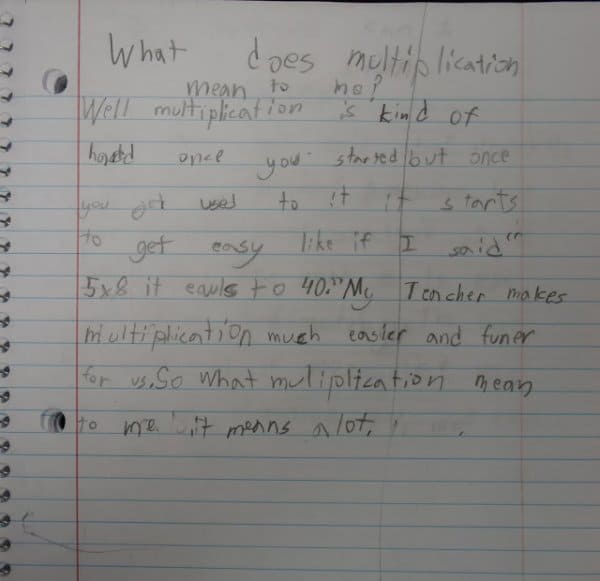 What does multiplication
mean to me?
Well multiplication is kind of
once you started but once
you get used to it it starts
to get easy like if I said"
5x8 it eauls to 40." My Teacher makes
multiplication much easier and funer
for us. So what muliplication mean
to me it means alot.